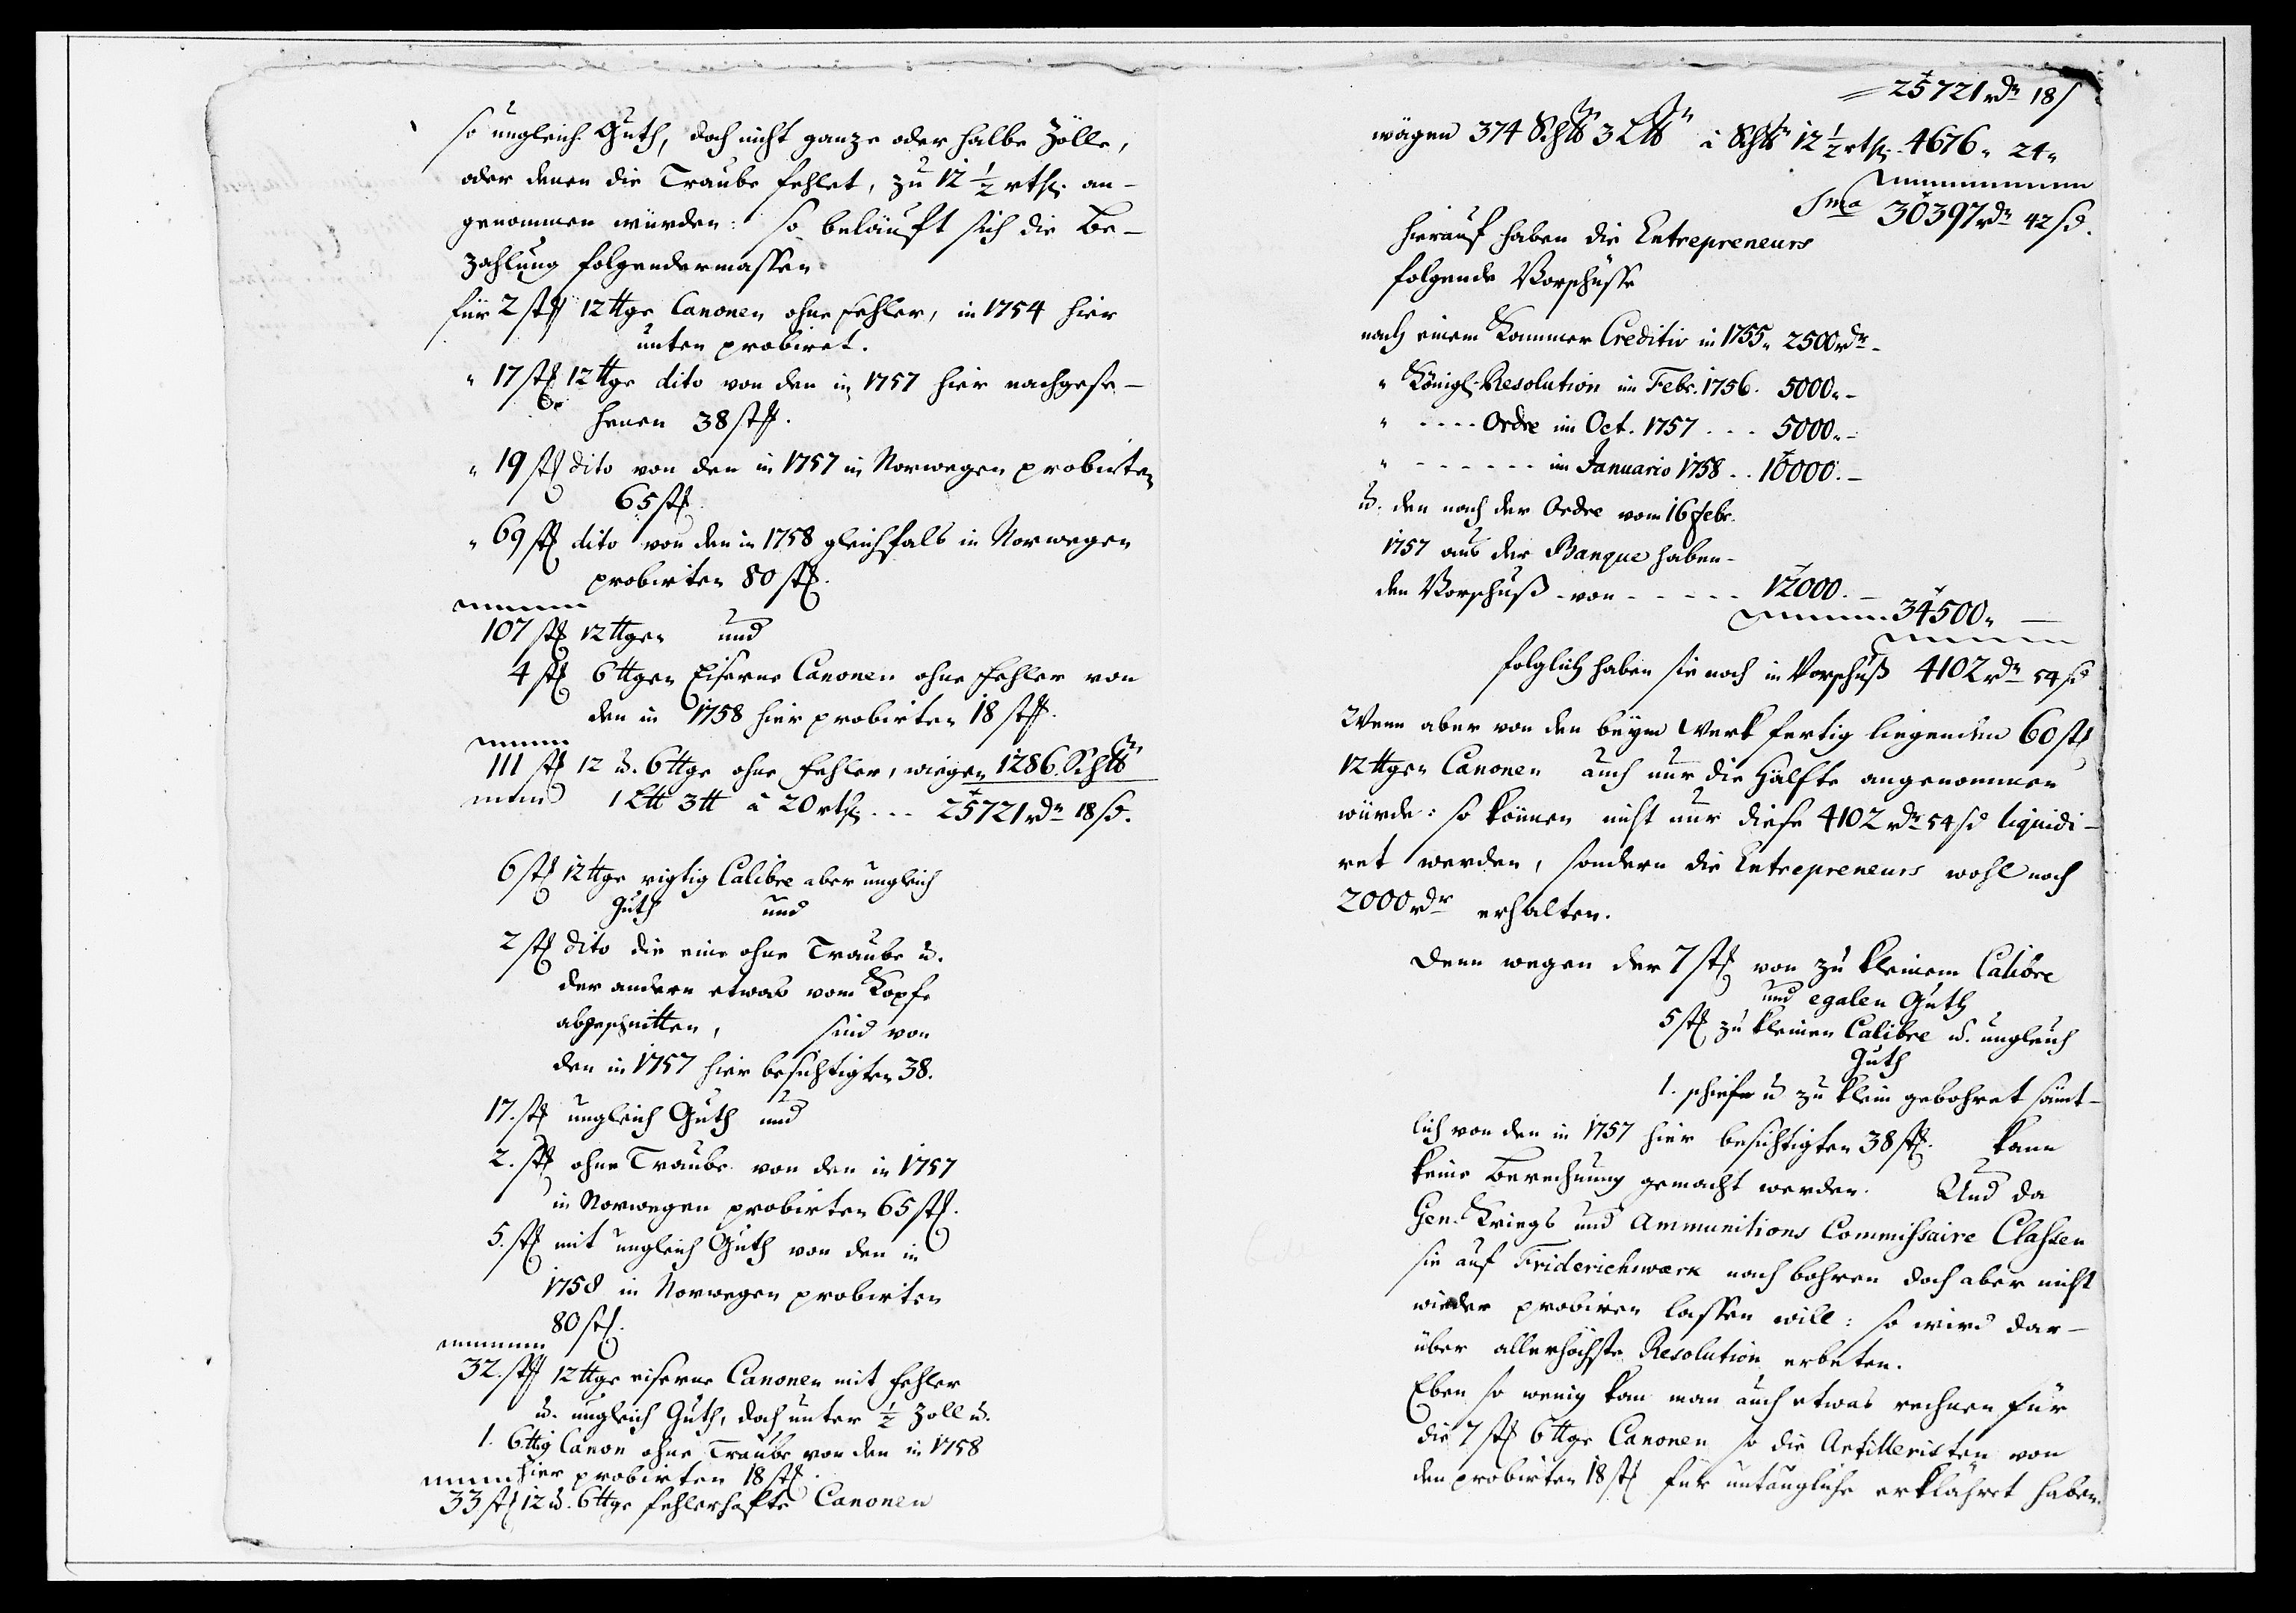 so ungleich Guth, doch nicht ganze oder halbe Zölle,
oder denen die Traube fehlet, zu 12 1/2 rthl. an-
genommen würden: so beläuft sich die Be-
zahlung folgendermassen
für 2 stk 12 ttge Canonen ohne Fehler, in 1754 hier
unten probiret.
" 17 stk 12 ttge dito von den in 1757 hier nachgese-
henen 38 stk.
" 19 stk dito von den in 1757 in Norwegen probirten
65 stk.
" 69 stk dito von den in 1758 gleichfals in Norwegen
probirten 80 stk.
107 stk 12 ttgen und
4 stk 6 ttgen Eiserne Canonen ohne Fehler von
den in 1758 hier probirten 18 stk.
111 stk 12 u. 6 ttge ohne Fehler, wiegen 1286. Schtt
1 Ltt 3 tt à 20 rthl. . . . 25721 rdr 18 s.
6 stk 12 ttge rigtig Calibre aber ungleich
Guth und
2 stk dito die eine ohne Traube u.
der andern etwas vom Kopfe
abgeschnitten, sind von
den in 1757 hier besichtigten 38.
17. stk ungleich Guth und
2. stk ohne Traube von den in 1757
in Norwegen probirten 65 stk.
5. stk mit ungleich Guth von den in
1758 in Norwegen probirten
80 stk.
32. stk 12 ttge eiserne Canonen mit Fehler
u. ungleich Guth, doch unter 1/2 Zoll u.
1. 6 ttig Canon ohne Traube von den in 1758
hier probirten 18 stk.
33 stk 12 u. 6 ttge fehlerhafte Canonen
25721 rdr 18 s
wägen 374 Schtt 3 Ltt à Schtt 12 1/2 rthl. 4676 " 24 "
Sma 30397 rdr 42 s.
Hierauf haben die Entrepreneurs
folgende Vorschüsse
nach einem Kammer Creditiv in 1755 " 2500 rdr -
" Königl. Resolution im Febr. 1756. 5000 " -
" - - - - Ordre im Oct. 1757 . . . 5000 " -
" - - - - - - im Januario 1758 . . 10000. -
u. den nach der Ordre vom 16 Febr.
1757 aus der Banque haben-
den Vorschuß von - - - - - 12000. -
34500 " -
folglich haben sie noch in Vorschuß 4102 rdr 54 s
Wenn aber von den beym Werk fertig liegenden 60 stk
12 ttgen Canonen auch nur die Hälfte angenommen
würde: so können nicht nur diese 4102 rdr 54 s liquidi-
ret werden, sondern die Entrepreneurs wohl noch
2000 rdr erhalten.
Denn wegen der 7 stk von zu kleinem Calibre
und egalen Guth
5 stk zu kleinen Calibre u. ungleich
Guth
1. schiefe u zu klein gebohret sämt-
lich von den in 1757 hier besichtigten 38 stk. kann
keine Berechnung gemacht werden. Und da
Gen. Kriegs und Ammunitions Commissaire Classen
sie auf Friderichswærk nach bohren doch aber nicht
wieder probiren lassen will: so wird dar-
über allerhöchste Resolution erbeten.
Eben so wenig kan man auch etwas rechnen für
die 7 stk 6 ttge Canonen so die Artilleristen von
den probirten 18 stk für untaugliche erklähret haben.